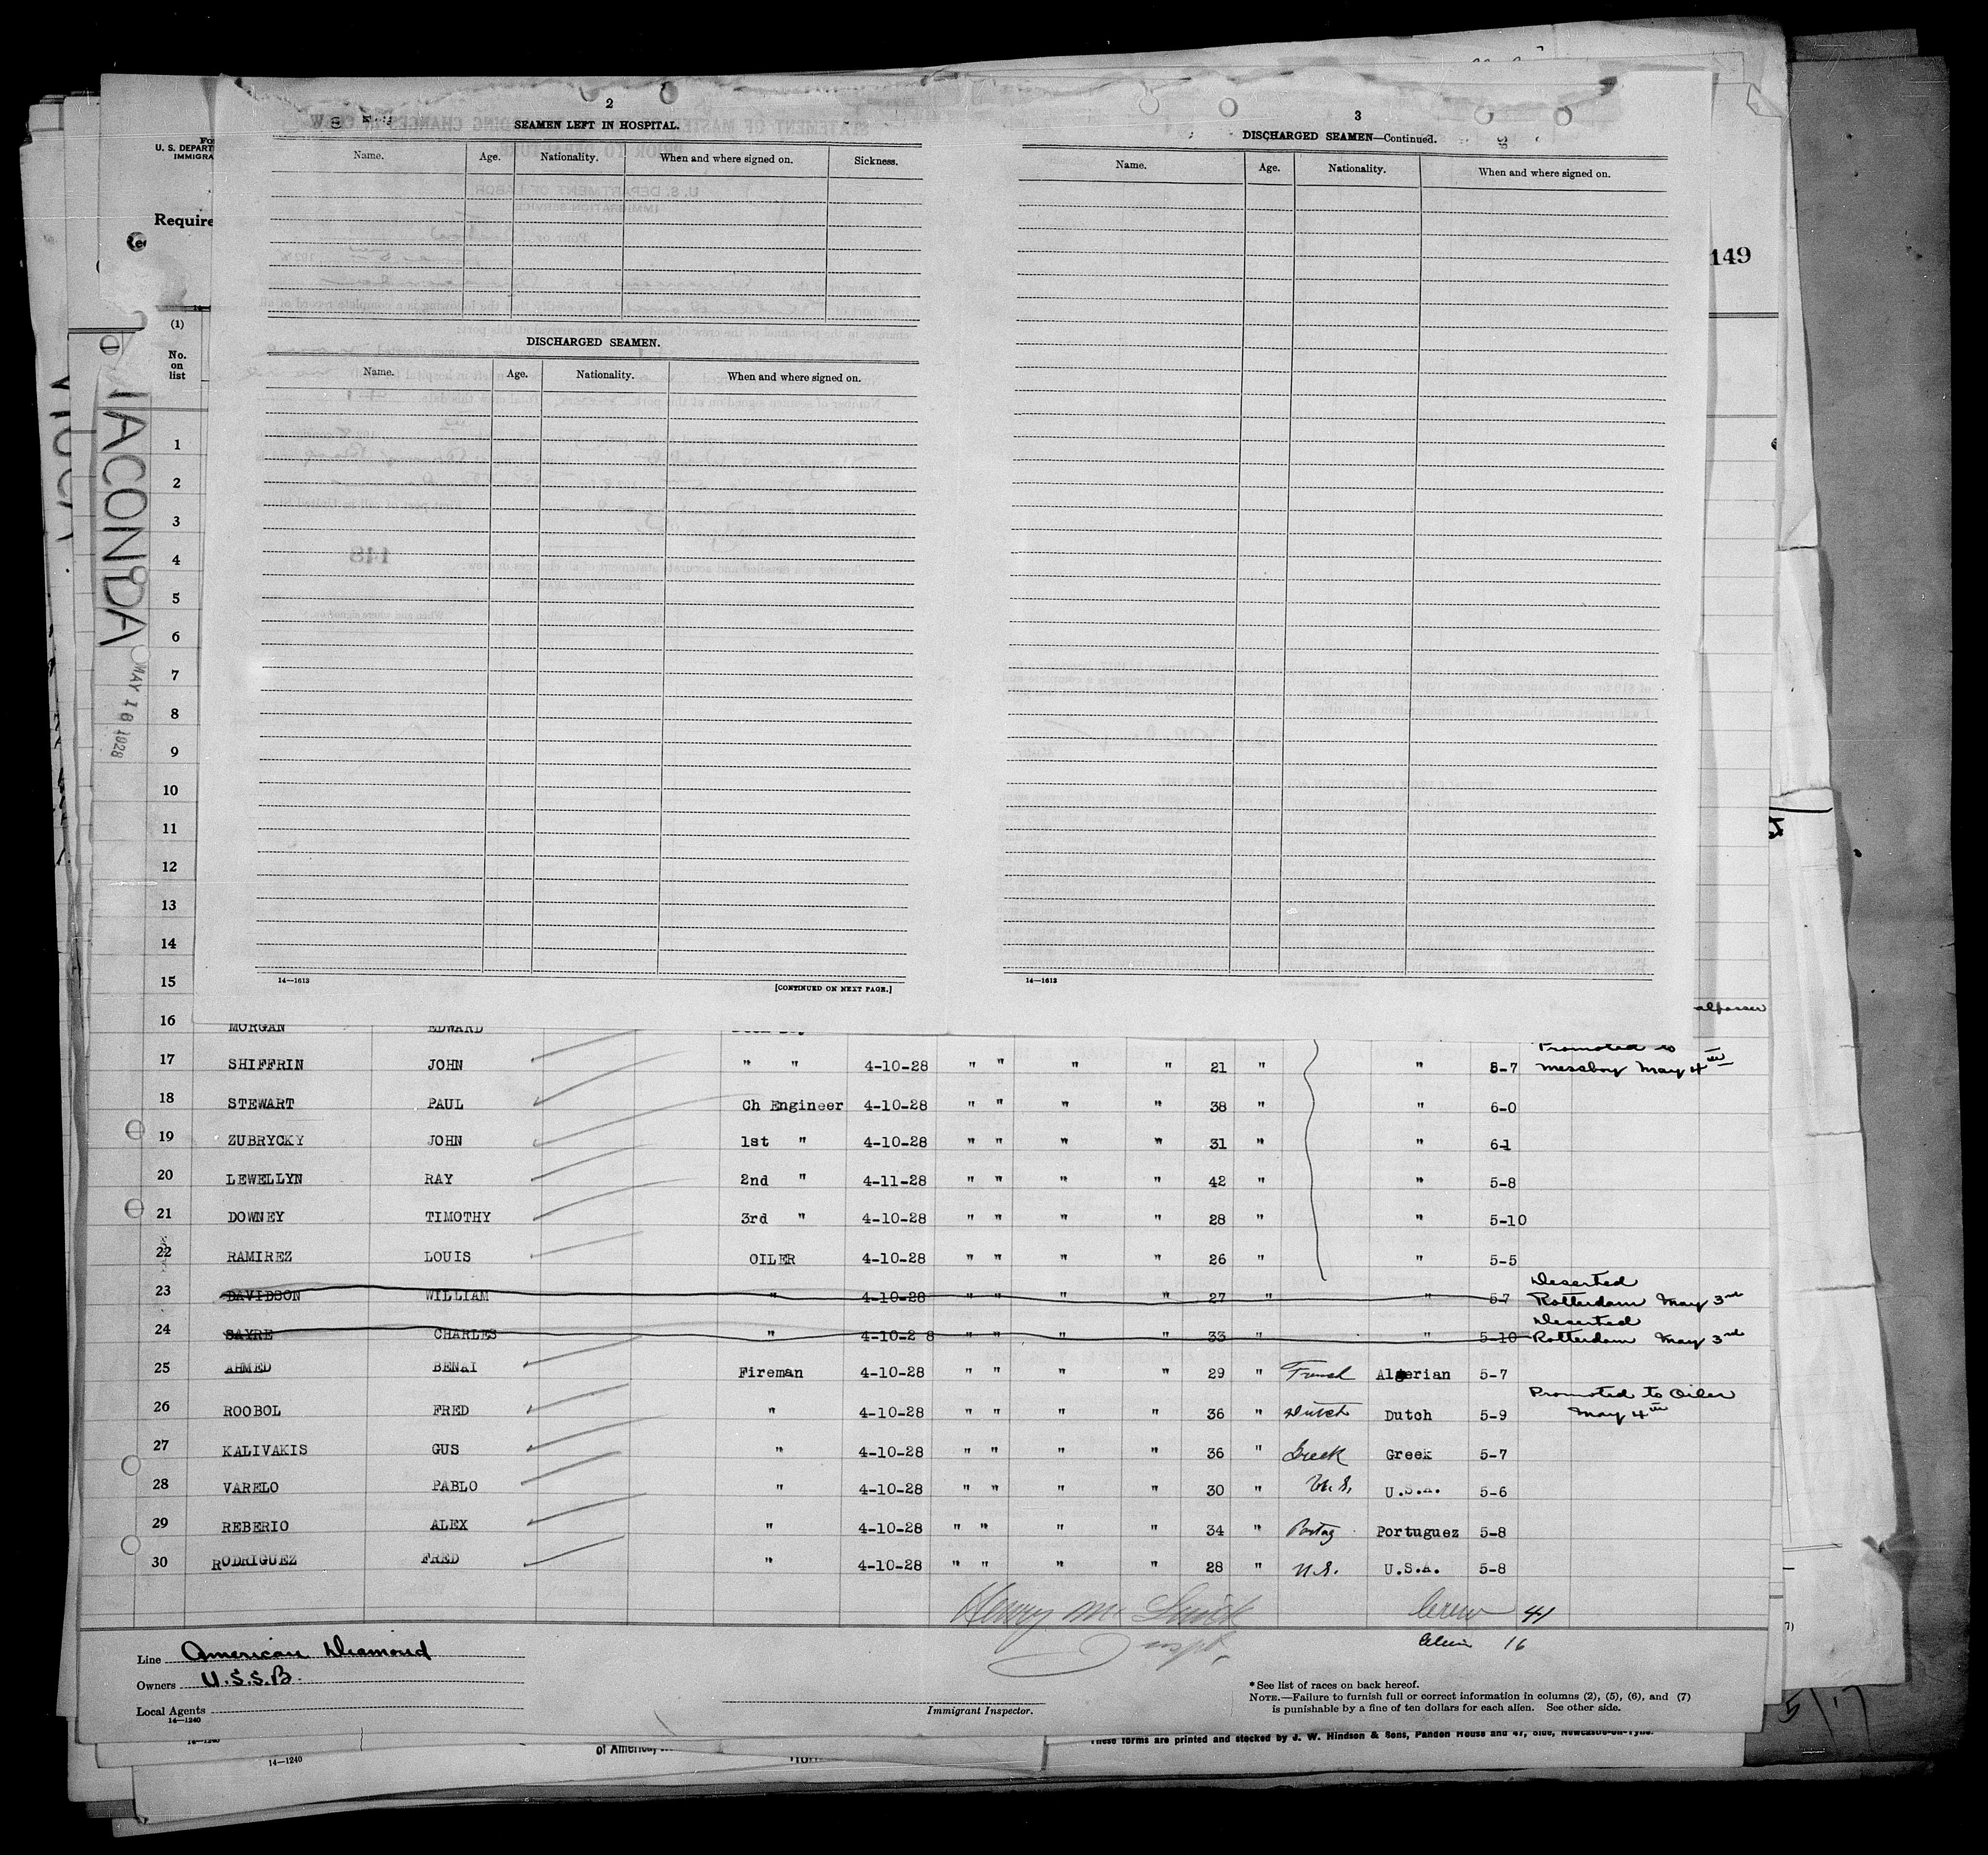 2
SEAMEN LEFT IN HOSPITAL.
Name. Age. Nationality. When and where signed on. Sickness.
DISCHARGED SEAMEN.
Name. Age. Nationality. When and where signed on.
14—1613
[CONTINUED ON NEXT PAGE.]
3
DISCHARGED SEAMEN—Continued.
Name. Age. Nationality. When and where signed on.
14—1613
149
U. S. DEPART
IMMIGRA
Require
(1)
No.
on
list
IACONDA
MAY 18 1928
1
2
3
4
5
6
7
8
9
10
11
12
13
14
15
16 MORGAN EDWARD
17 SHIFFRIN JOHN " " 4-10-28 " " " " 21 " " 5-7 Promoted to
messboy May 4th
18 STEWART PAUL Ch Engineer 4-10-28 " " " " 38 " " 6-0
19 ZUBRYCKY JOHN 1st " 4-10-28 " " " " 31 " " 6-1
20 LEWELLYN RAY 2nd " 4-11-28 " " " " 42 " " 5-8
21 DOWNEY TIMOTHY 3rd " 4-10-28 " " " " 28 " " 5-10
22 RAMIREZ LOUIS OILER 4-10-28 " " " " 26 " " 5-5
23 DAVIDSON WILLIAM " 4-10-28 " " " " 27 " " 5-7 Deserted
Rotterdam May 3rd
24 SAYRE CHARLES " 4-10-28 " " " " 33 " " 5-10 Deserted
Rotterdam May 3rd
25 AHMED BENAI Fireman 4-10-28 " " " " 29 " French Algerian 5-7
26 ROOBOL FRED " 4-10-28 " " " " 36 " Dutch Dutch 5-9 Promoted to Oiler
May 4th
27 KALIVAKIS GUS " 4-10-28 " " " " 36 " Greek Greek 5-7
28 VARELO PABLO " 4-10-28 " " " " 30 " U.S. U.S.A. 5-6
29 REBERIO ALEX " 4-10-28 " " " " 34 " Portug Portuguez 5-8
30 RODRIGUEZ FRED " 4-10-28 " " " " 28 " U.S. U.S.A. 5-8
Henry Mc
Inspt.
Crew 41
Alien 16
Line American Diamond
Owners U.S.S.B.
Local Agents
14—1240
Immigrant Inspector.
*See list of races on back hereof.
NOTE.—Failure to furnish full or correct information in columns (2), (5), (6), and (7)
is punishable by a fine of ten dollars for each alien. See other side.
14—1240
of America,
These forms are printed and stocked by J. W. Hindson & Sons, Pandon House and 47, Side, Newcastle-on-Tyne.
5/17